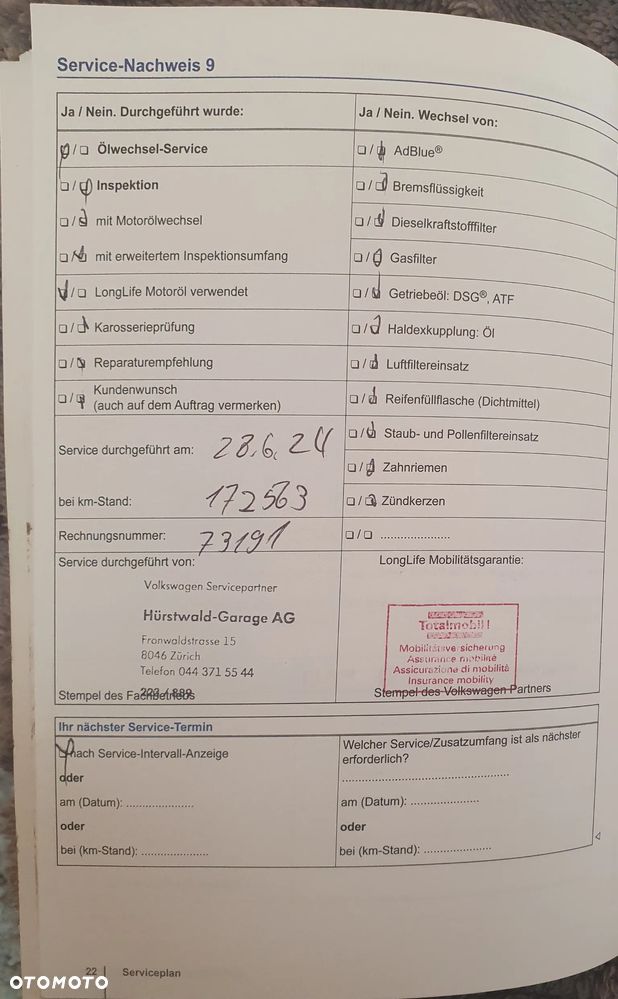 Service-Nachweis 9
Ja / Nein. Durchgeführt wurde:
Ja / Nein. Wechsel von:
☐/☐ Ölwechsel-Service
☐/☐ AdBlue®
☐/☐ Inspektion
☐/☐ Bremsflüssigkeit
☐/☐ mit Motorölwechsel
☐/☐ Dieselkraftstofffilter
☐/☐ mit erweitertem Inspektionsumfang
☐/☐ Gasfilter
☐/☐ LongLife Motoröl verwendet
☐/☐ Getriebeöl: DSG®, ATF
☐/☐ Karosserieprüfung
☐/☐ Haldexkupplung: Öl
☐/☐ Reparaturempfehlung
☐/☐ Luftfiltereinsatz
☐/☐ Kundenwunsch
(auch auf dem Auftrag vermerken)
☐/☐ Reifenfüllflasche (Dichtmittel)
☐/☐ Staub- und Pollenfiltereinsatz
Service durchgeführt am: 28.6.24
☐/☐ Zahnriemen
bei km-Stand: 172563
☐/☐ Zündkerzen
Rechnungsnummer: 73191
☐/☐ ......................
Service durchgeführt von:
LongLife Mobilitätsgarantie:
Volkswagen Servicepartner
Hürstwald-Garage AG
Fronwaldstrasse 15
8046 Zürich
Telefon 044 371 55 44
Totalmobil!
Mobilitätsversicherung
Assurance mobilité
Assicurazione di mobilità
Insurance mobility
Stempel des Fachbetriebs
Stempel des Volkswagen Partners
Ihr nächster Service-Termin
nach Service-Intervall-Anzeige
oder
am (Datum): ......................
oder
bei (km-Stand): ......................
Welcher Service/Zusatzumfang ist als nächster
erforderlich?
......................................................
am (Datum): ......................
oder
bei (km-Stand): ......................
22 Serviceplan
OTOMOTO